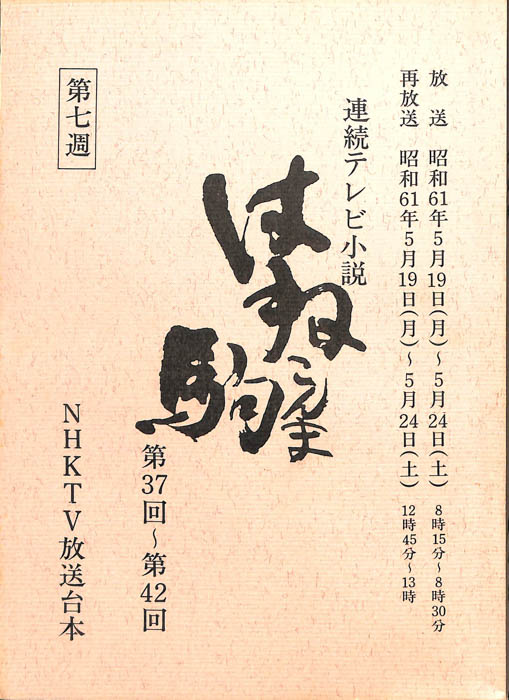 放送 昭和61年5月19日(月)～5月24日(土) 8時15分～8時30分
再放送 昭和61年5月19日(月)～5月24日(土) 12時45分～13時
連続テレビ小説
はね駒
こんま
第37回～第42回
第七週
NHKTV放送台本